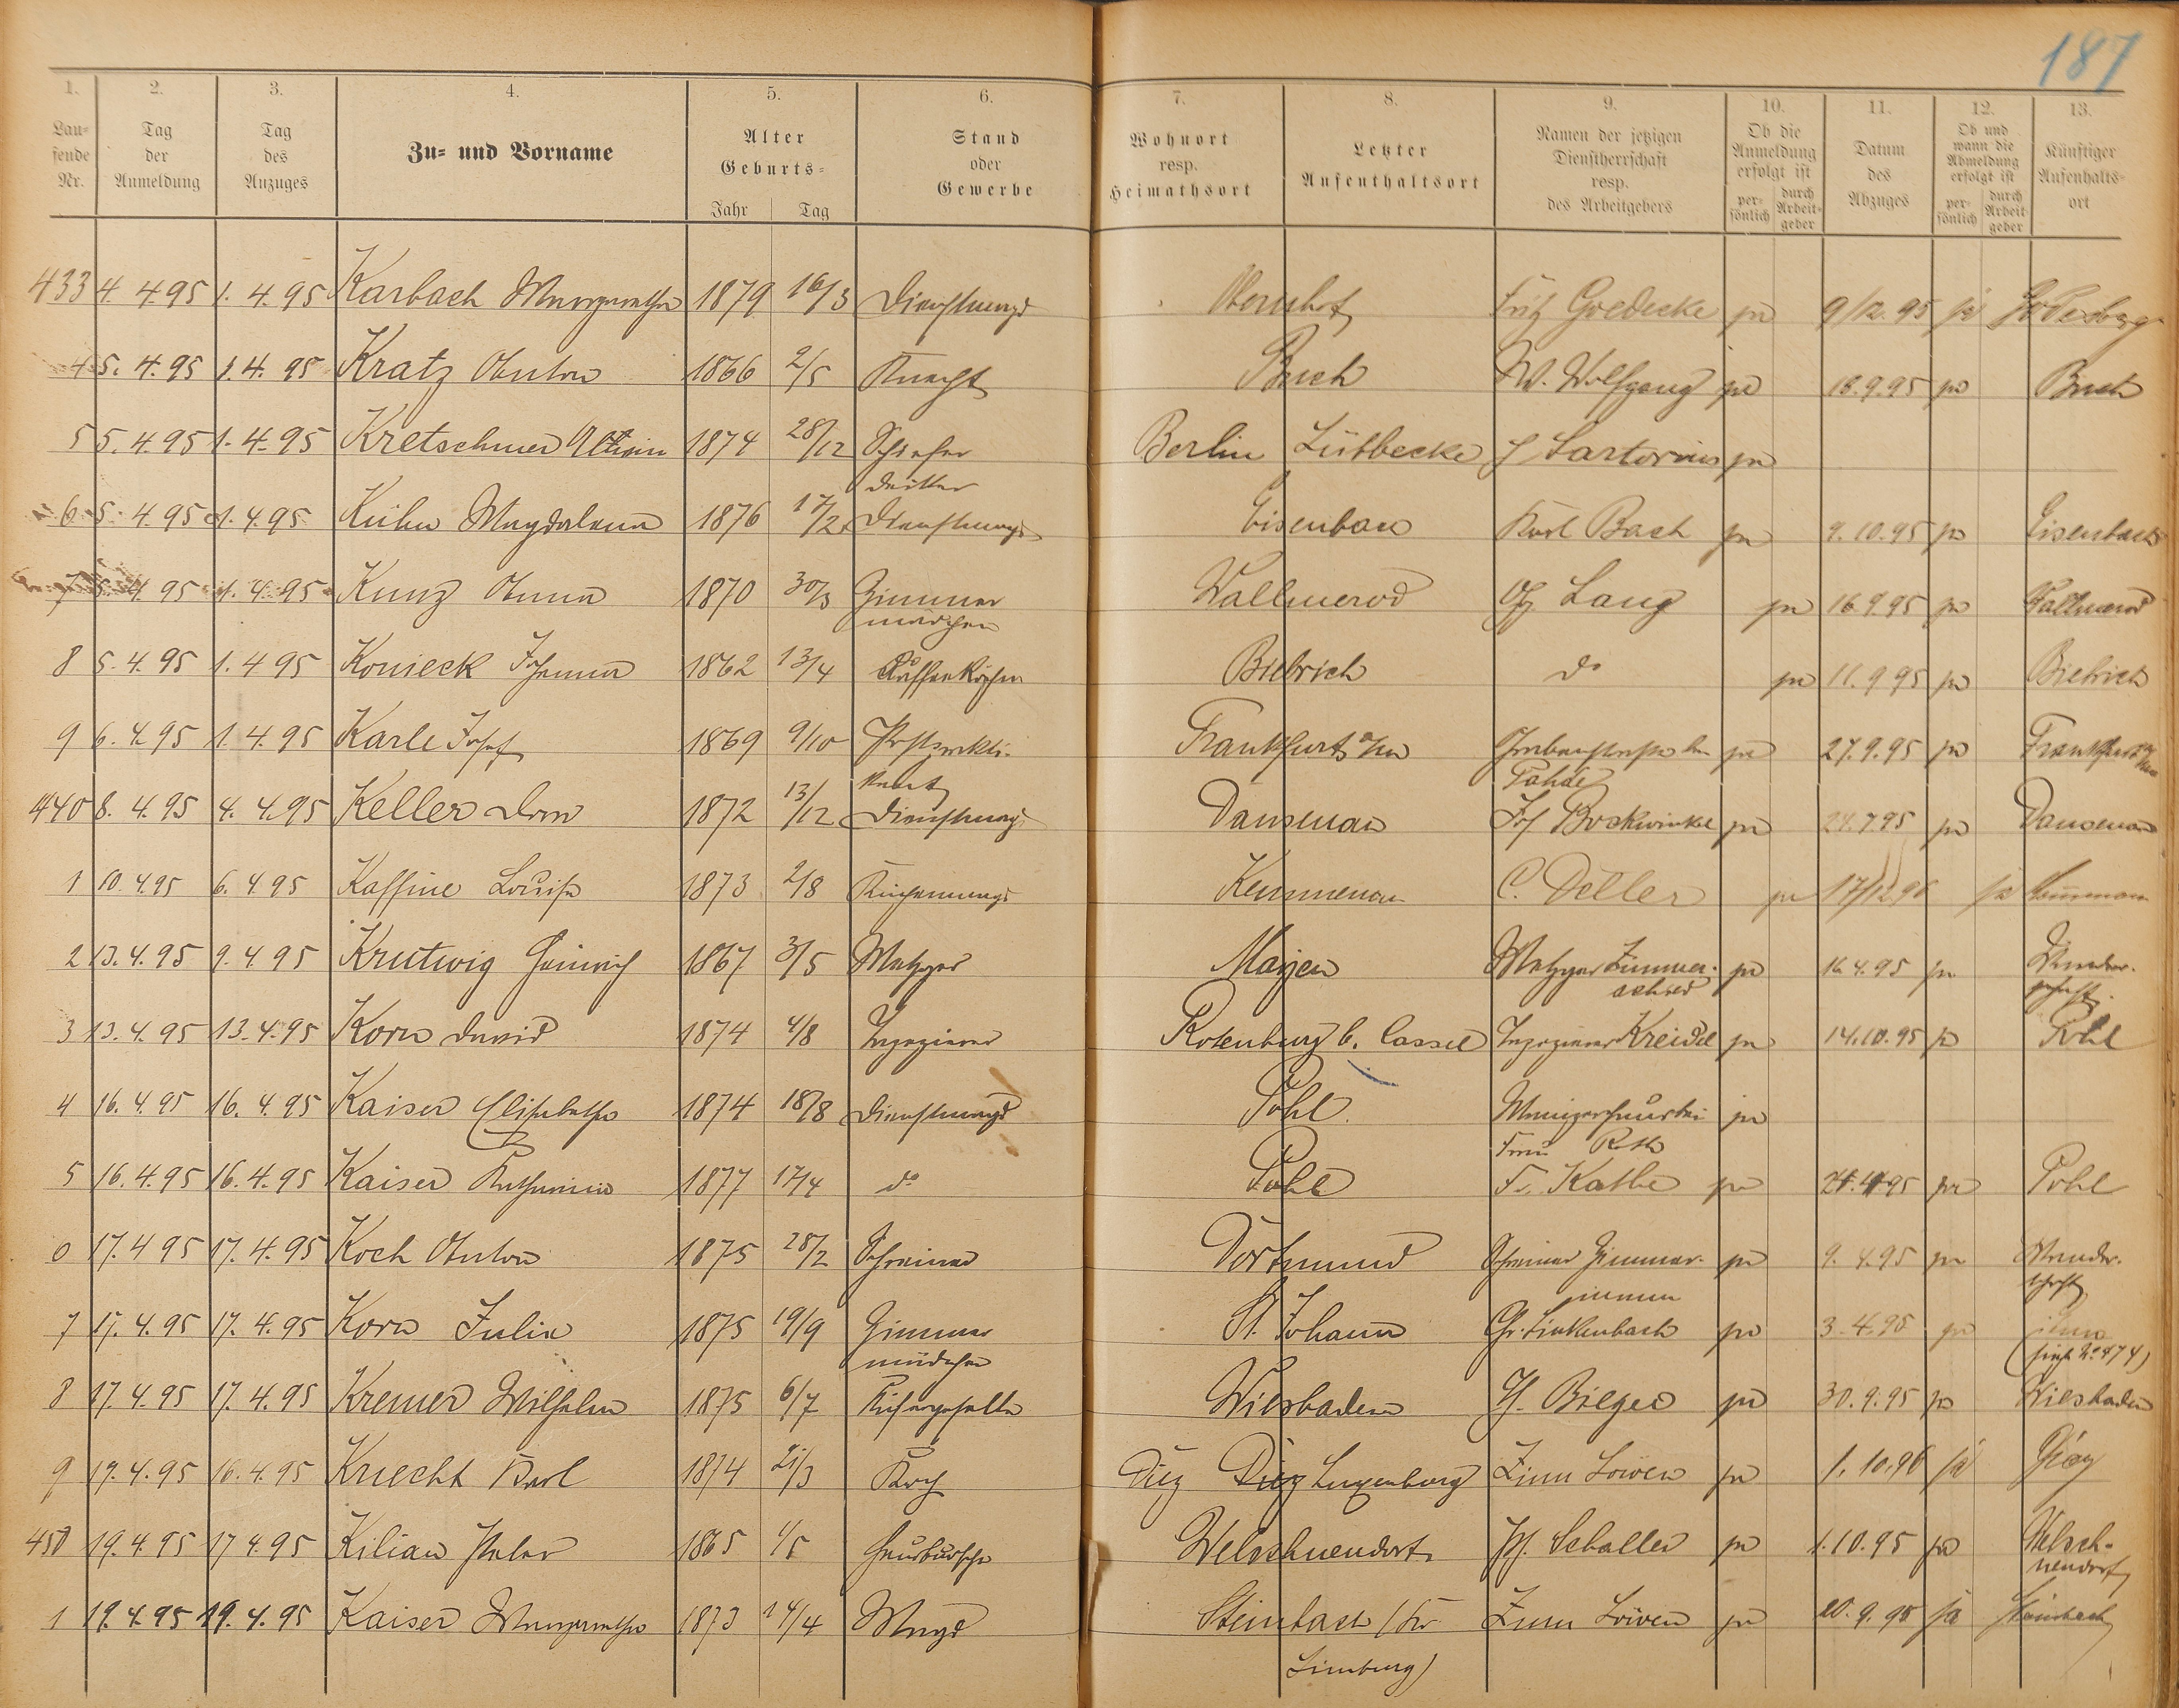 187
1. 2. 3. 4. 5. 6. 7. 8. 9. 10. 11. 12. 13.
Laufende Nr. Tag der Anmeldung Tag des Anzuges Zu- und Vorname Alter Geburts- Jahr Tag Stand oder Gewerbe Wohnort resp. Heimathsort Letzter Aufenthaltsort Namen der jetzigen Dienstherrschaft resp. des Arbeitgebers Ob die Anmeldung erfolgt ist persönlich durch Arbeitgeber Datum des Abzuges Ob und wann die Abmeldung erfolgt ist persönlich durch Arbeitgeber Künftiger Aufenthaltsort
433 4 4 95 1. 4. 95 Karbach Margaretha 1879 16/3 Dienstmagd Obernhof Fritz Goedecke 9/12. 95 ja Godesberg
4 5. 4. 95 1. 4. 95 Kratz Anton 1866 2/5 Knecht Buch W. Wolfgang 18. 9. 95 Buch
5 5. 4. 95 1. 4. 95 Kretschmer 1874 28/12 Berlin Lübbecke Sartorius
6 5. 4. 95 1. 4. 95 Kuhn Magdalena 1876 17/2 Dienstmagd Eisenbach Karl Bach 9. 10. 95 Eisenbach
7 5. 4. 95 1. 4. 95 Kunz Anna 1870 30/3 Zimmer
mädchen Wallmerod Lang 16. 9. 95 Wallmerod
8 5. 4. 95 1. 4 95 Konieck Johanna 1862 13/4 Kaffeeköchin Biebrich do 11. 9 95 Biebrich
9 6. 4. 95 1. 4. 95 Karle Josef 1869 9/10 Frankfurt a/M 27. 9. 95 Frankfurt a/M
440 8. 4. 95 4. 4. 95 Keller Dora 1872 13/12 Dienstmagd Dausenau Jos Bockwinkel 24. 7 95 Dausenau
1 10. 4. 95 6. 4 95 Kaffine Louise 1873 2/8 Küchenmagd Kemmenau C. Deller 17/12 96 ja Kemmenau
2 13. 4. 95 9. 4. 95 Krutwig Heinrich 1867 3/5 Metzger Mayen Metzger Zimmer-
schied 16. 4. 95 Wander-
schaft
3 13. 4. 95 13. 4. 95 Korn David 1874 4/8 Tapezierer Rotenburg b. Cassel Tapezierer Kreidel 14. 10. 95 Pohl
4 16. 4. 95 16. 4. 95 Kaiser Elisabetha 1874 18/8 Dienstmagd Pohl.
Frau Roth
5 16. 4. 95 16. 4. 95 Kaiser Katharina 1877 17/4 do Pohl Kathe 95 Pohl
17. 4 95 17. 4. 95 Koch Anton 1875 28/2 Schreiner Dortmund Schreiner 9. 4. 95 Wander-
schaft
7 17. 4. 95 17. 4. 95 Korn Julie 1875 19/9 Zimmer
mädchen St. Johann Chr. Linkenbach 3. 4. 95
(siehe No 474)
8 17. 4. 95 17. 4. 95 Kremer Wilhelm 1875 6/7 Küfergeselle Wiesbaden Bieger 30. 9. 95 Wiesbaden
9 19. 4. 95 16. 4. 95 Knecht Karl 1874 21/3 Koch Diez Diez Luxenburg Zum Löwen 1. 10. 96 ja
450 19. 4. 95 17 4. 95 Kilian Peter 1865 1/5 Hausbursche Welschneudorf Schaller 1. 10. 95 Welsch-
neudorf
1 19. 4. 95 19. 4. 95 Kaiser Margaretha 1873 14/4 Magd Steinbach (Kr. Zum Löwen 20. 9. 95 ja Steinbach
Limburg)